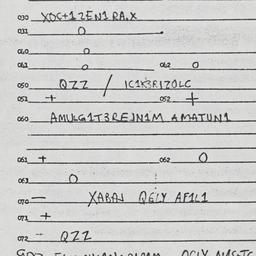 030 XOC+1ZEN1 RA.X
031 O
040 O
041 O 042 O
050 QZZ / IC1K3RIZOLC
051 + 052 +
060 AMULG1T3REJN1M AMATUN1
061 + 062 O
063 O
070 — XABAJ QGLY AF1L1
071 +
072 — QZZ